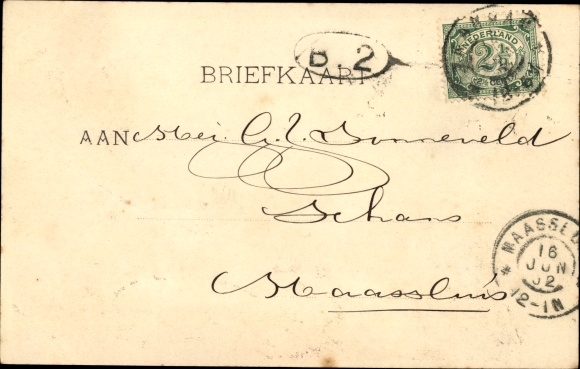 NEDERLAND
2½
B. 2
BRIEFKAART
AAN Mej. G. J. Sonneveld
Schans
Maassluis
MAASSLUI
16
JUN
02
12-1N